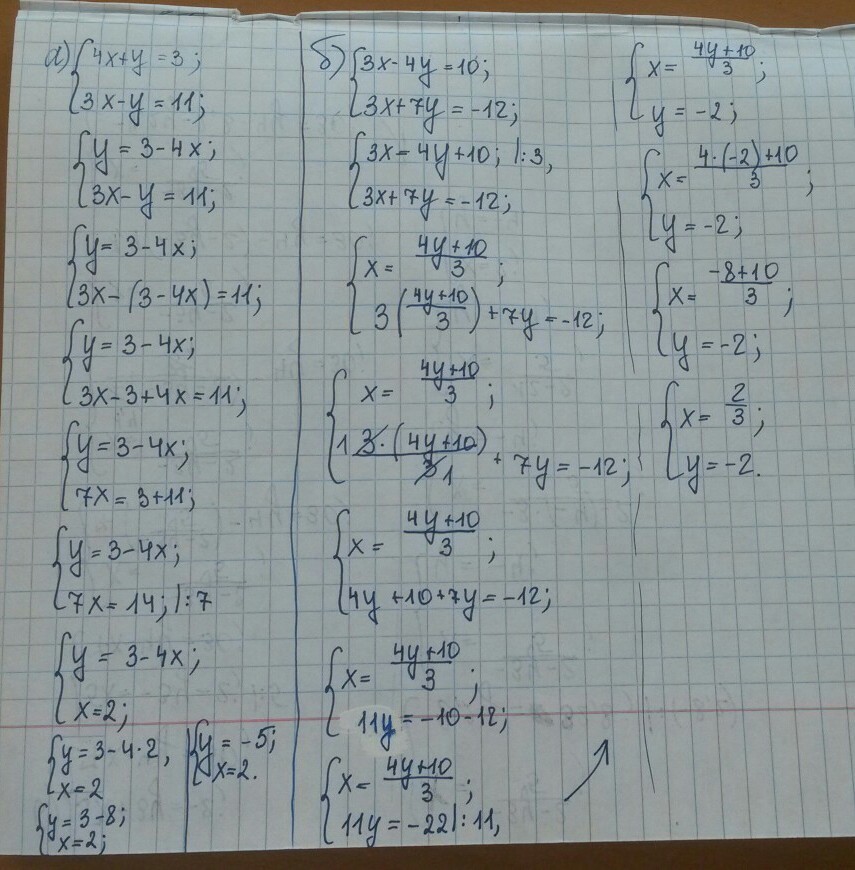 а) { 4x+y = 3;
3x-y = 11;
{ y = 3-4x;
3x-y = 11;
{ y = 3-4x;
3x-(3-4x)=11;
{ y = 3-4x;
3x-3+4x=11;
{ y = 3-4x;
7x = 3+11;
{ y = 3-4x;
7x = 14; |:7
{ y = 3-4x;
x=2;
{ y=3-4·2,
x=2
{ y=3-8;
x=2;
{ y = -5;
x=2.
б) { 3x-4y=10;
3x+7y=-12;
{ 3x = 4y+10; |:3,
3x+7y=-12;
{ x = (4y+10)/3;
3((4y+10)/3)+7y=-12;
{ x = (4y+10)/3;
1 3·(4y+10)/3 1 + 7y=-12;
{ x = (4y+10)/3;
4y+10+7y=-12;
{ x = (4y+10)/3;
11y=-10-12;
{ x = (4y+10)/3;
11y=-22|:11,
{ x = (4y+10)/3;
y = -2;
{ x = (4·(-2)+10)/3;
y=-2;
{ x = (-8+10)/3;
y = -2;
{ x = 2/3;
y=-2.